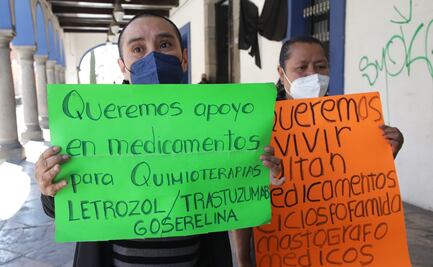 Queremos apoyo
en medicamentos
para QUIMIOTERAPIAS
LETROZOL/TRASTUZUMAB
GOSERELINA
Queremos
VIVIR
medicamentos
ciclosfofamida
mastografo
medicos